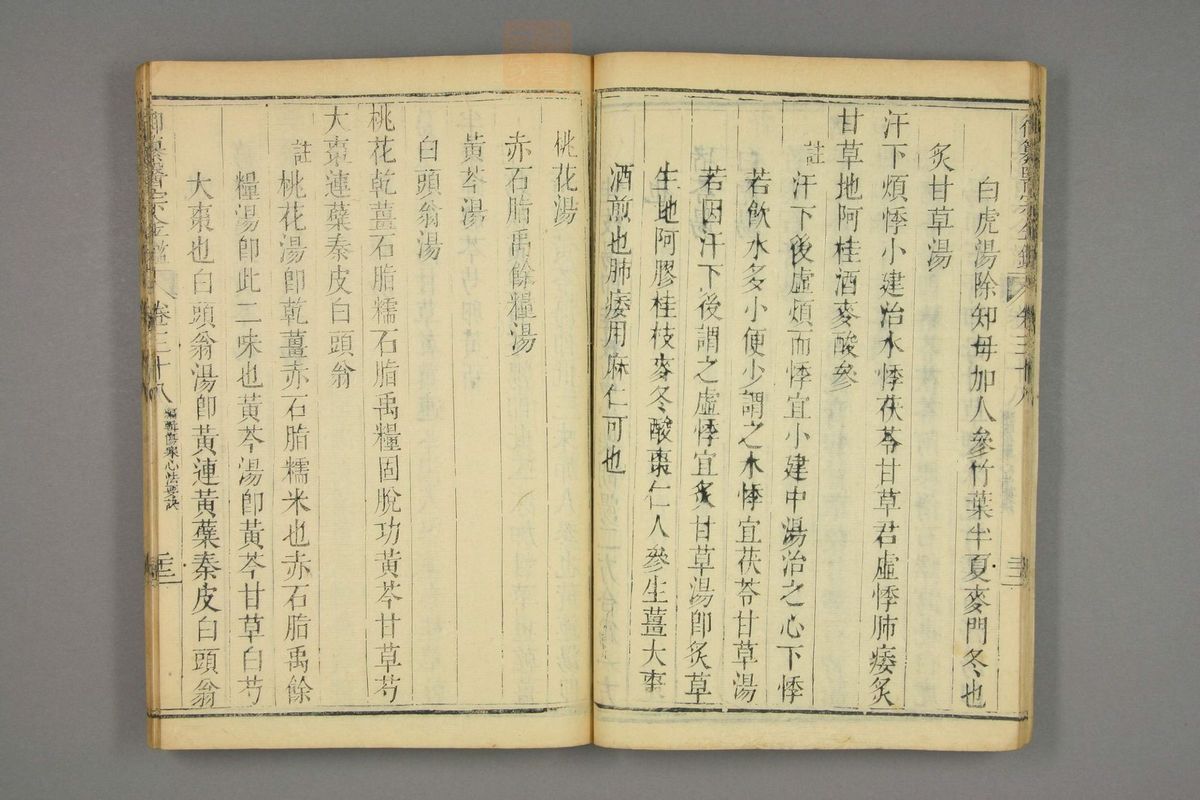 白虎湯除知母加人參竹葉半夏麥門冬也
炙甘草湯
汗下煩悸小建治水悸茯苓甘草君虛悸肺痿炙
甘草地阿桂酒麥酸參
註汗下後虛煩而悸宜小建中湯治之心下悸
若飲水多小便少謂之水悸宜茯苓甘草湯
若因汗下後謂之虛悸宜炙甘草湯卽炙草
生地阿膠桂枝麥冬酸棗仁人參生薑大棗
酒煎也肺痿用麻仁可也
桃花湯
赤石脂禹餘糧湯
黃芩湯
白頭翁湯
桃花乾薑石脂糯石脂禹糧固脫功黃芩甘草芍
大棗連蘗秦皮白頭翁
註桃花湯卽乾薑赤石脂糯米也赤石脂禹餘
糧湯卽此二味也黃芩湯卽黃芩甘草白芍
大棗也白頭翁湯卽黃連黃蘗秦皮白頭翁
御纂醫宗金鑑 卷三十八 編輯傷寒心法要訣